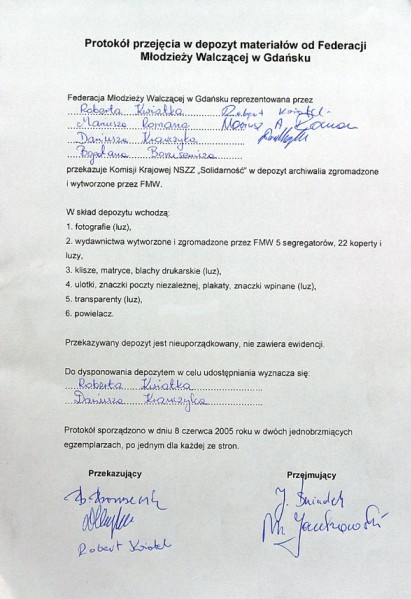 Protokół przejęcia w depozyt materiałów od Federacji
Młodzieży Walczącej w Gdańsku
Federacja Młodzieży Walczącej w Gdańsku reprezentowana przez
Roberta Kwiatka
Mariusza Romana Mariusz A. Roman
Dariusza Krawczyka
Bogdana Borusewicza
przekazuje Komisji Krajowej NSZZ „Solidarność” w depozyt archiwalia zgromadzone
i wytworzone przez FMW.
W skład depozytu wchodzą:
1. fotografie (luz),
2. wydawnictwa wytworzone i zgromadzone przez FMW 5 segregatorów, 22 koperty i
luzy,
3. klisze, matryce, blachy drukarskie (luz),
4. ulotki, znaczki poczty niezależnej, plakaty, znaczki wpinane (luz),
5. transparenty (luz),
6. powielacz.
Przekazywany depozyt jest nieuporządkowany, nie zawiera ewidencji.
Do dysponowania depozytem w celu udostępniania wyznacza się:
Roberta Kwiatka
Dariusza Krawczyka
Protokół sporządzono w dniu 8 czerwca 2005 roku w dwóch jednobrzmiących
egzemplarzach, po jednym dla każdej ze stron.
Przekazujący Przejmujący
J. Śniadek
Jankowski
Robert Kwiatek